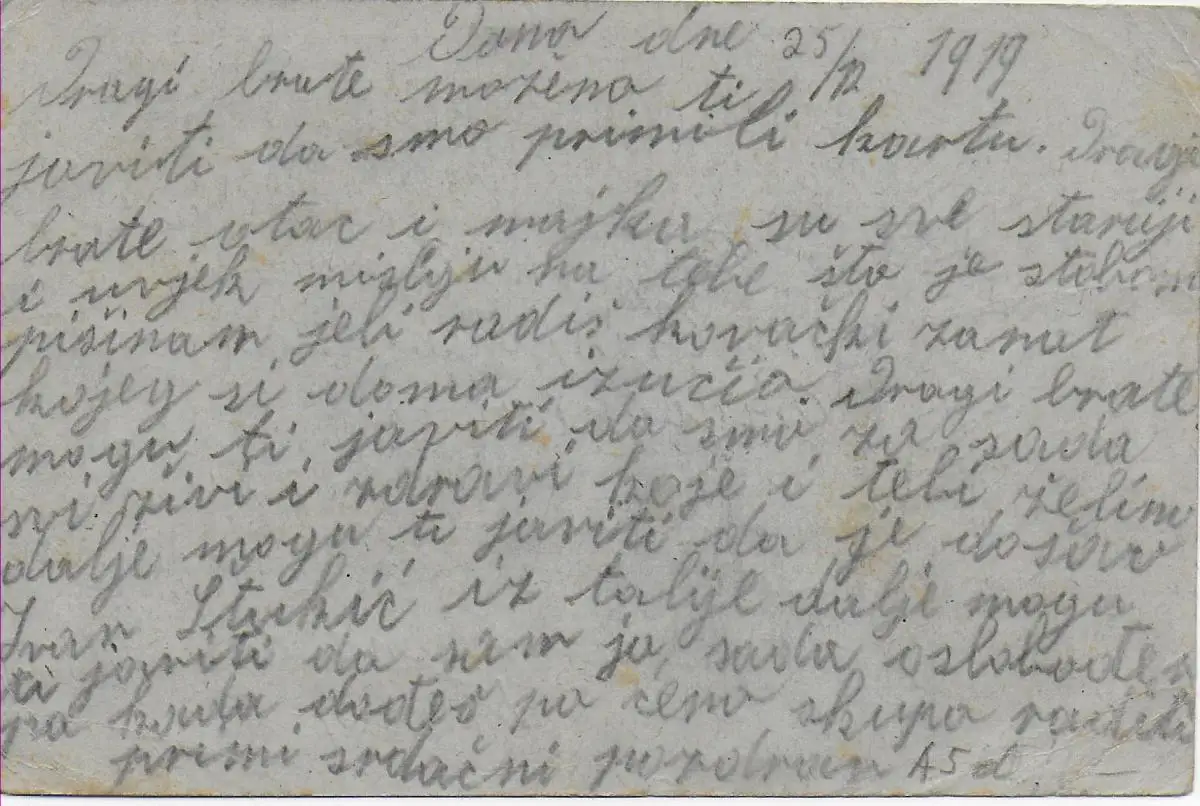 Dana dne 25/II 1919
Dragi brate možemo ti
javiti da smo primili kartu. Dragi
brate otac i majka su sve stariji
i uvjek misliju na tebe što je stobom
pišinam jeli radiš kovački zanat
kojeg si doma izučio. Dragi brate
mogu ti javiti da smo za sada
svi živi i zdravi koje i tebi želimo
dalje mogu ti javiti da je došao
Ivan iz talije dalje mogu
ti javiti da sam ja sada oslobođen
pa kada dođeš pa ćemo skupa raditi
primi srdačni pozdrav